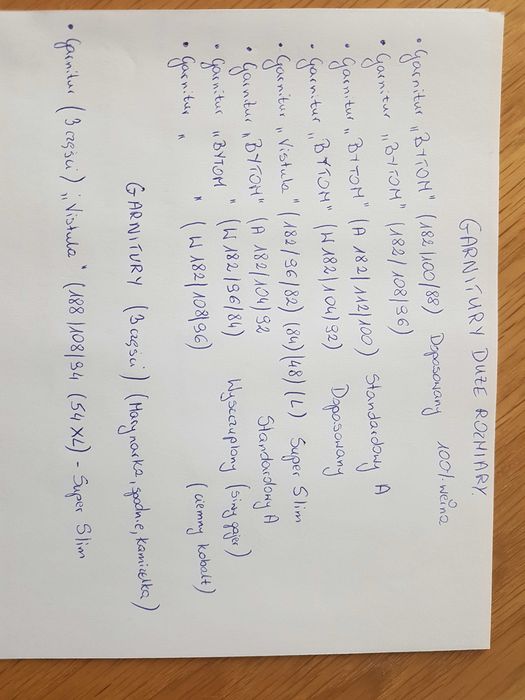 GARNITURY DUŻE ROZMIARY
• Garnitur „BYTOM" (182/100/88) Dopasowany 100% wełna
• Garnitur „BYTOM" (182/108/96)
• Garnitur „BYTOM" (A 182/112/100) Standardowy A
• Garnitur „BYTOM" (W 182/104/92) Dopasowany
• Garnitur „Vistula" (182/96/82) (84)(48)(L) Super Slim
• Garnitur „BYTOM" (A 182/104/92 Standardowy A
• Garnitur „BYTOM" (W 182/96/84) Wyszczuplony (siny)
• Garnitur „ " (W 182/108/96) (ciemny kobalt)
GARNITURY (3 części) (Marynarka, spodnie, kamizelka)
• Garnitur (3 części) „Vistula" (188/108/94 (54 XL) - Super Slim